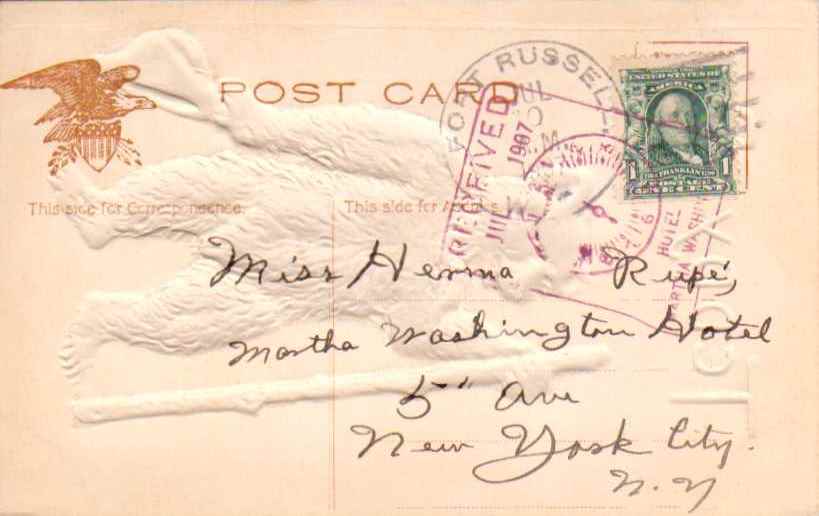 POST CARD
FORT RUSSELL
JUL
M
RECEIVED
JUL
1907
UNITED STATES OF
AMERICA
FRANKLIN
1 1
POSTAGE
ONE CENT
HOTEL
MARTHA WASHIN
6
This side for Correspondence.
This side for Address
Miss Herma Rupé,
Martha Washington Hotel
5" Ave
New York City.
N. Y